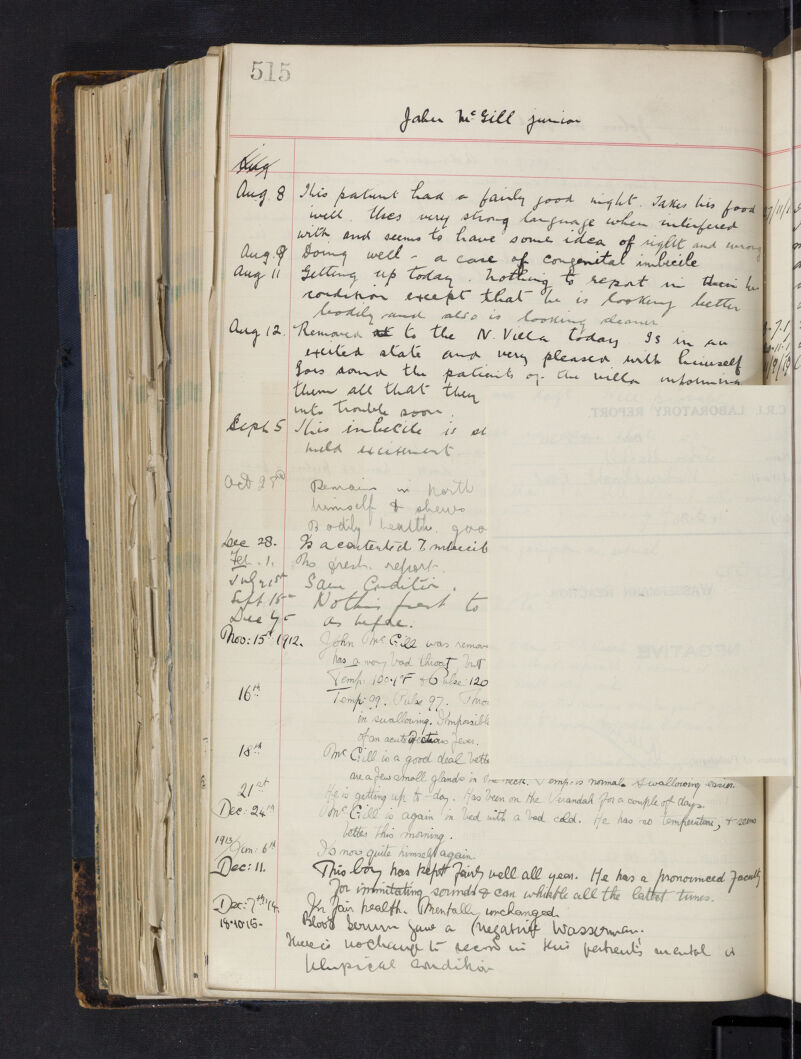 515
John McGill junior
Aug
Aug. 8 This patient had a fairly good night. Takes his food
well. Uses very strong language when interfered
with and seems to have some idea of right and wrong
Aug. 9 Doing well - a case of congenital imbecile
Aug 11 Getting up today. Nothing to report in
condition except that he is looking better
bodily and also is looking cleaner
Aug 12. Removed to the N. Villa today Is in an
excited state and very pleased with himself
Goes round the patients of the villa informing
them all that they
into trouble soon.
Sept 5 This imbecile is
mild excitement.
Oct 27th Remains in North
himself & shews
Bodily health. goo
Dec 28. Is a contented Imbecile
Feb. 1. No fresh report.
July 21st Same Condition.
Sept. 18th Nothing fresh to
Dec as before.
Nov: 15th 1912. John McGill was remov
has a very bad throat, but
Temp: 100.1°F & Pulse 120
16th Temp: 99. Pulse 97.
in swallowing. Impossible
of an acute fever.
18th McGill is a good deal bette
are a few small glands in the neck. Temp: is normal & swallowing easier.
21st He is getting up to-day. Has been on the Verandah for a couple of days.
Dec: 24th McGill is again in bed with a bad cold. He has no temperature, & seems
better this morning.
1913 Jan: 6th Is now quite himself again.
Dec: 11. This boy has kept fairly well all year. He has a pronounced faculty
for immitating sounds & can whistle all the latest tunes.
Dec: 7th '14. In fair health. Mentally unchanged.
18.10.15. Blood Serum gave a (negative Wasserman.
There is no change to record in this patient's mental or
physical condition
C.R.I. LABORATORY REPORT.
WASSERMANN REACTION
NEGATIVE